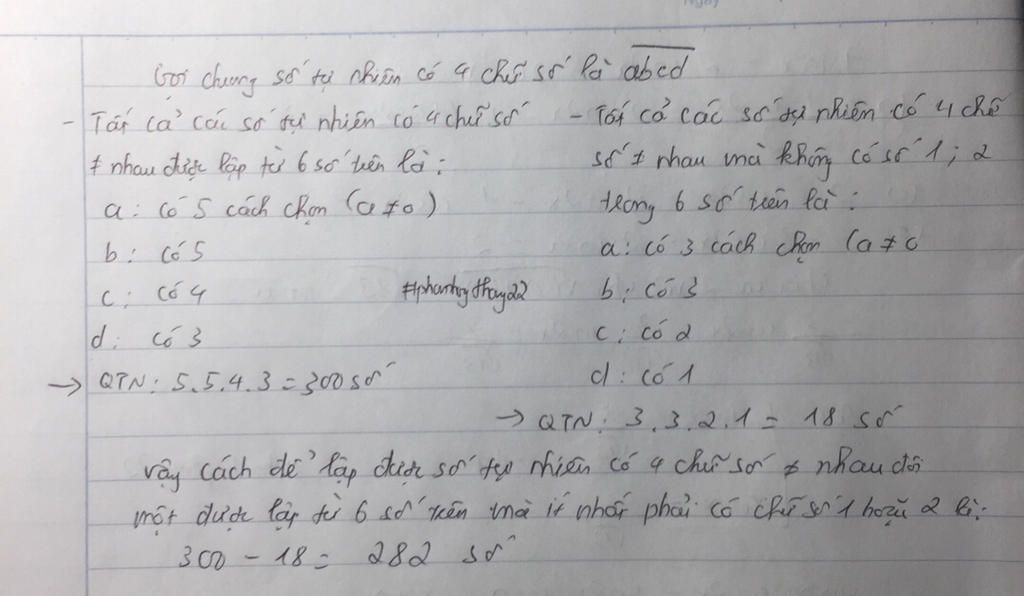 Gọi chung số tự nhiên có 4 chữ số là abcd
- Tất cả các số tự nhiên có 4 chữ số
≠ nhau được lập từ 6 số trên là:
a: có 5 cách chọn (a ≠ 0)
b: có 5
c: có 4
d: có 3
→ QTN: 5.5.4.3 = 300 số
#phanhuythay22
- Tất cả các số tự nhiên có 4 chữ
số ≠ nhau mà không có số 1; 2
trong 6 số trên là:
a: có 3 cách chọn (a ≠ 0
b: có 3
c: có 2
d: có 1
→ QTN: 3.3.2.1 = 18 số
Vậy cách để lập được số tự nhiên có 4 chữ số ≠ nhau đôi
một được lập từ 6 số trên mà ít nhất phải có chữ số 1 hoặc 2 là:
300 - 18 = 282 số